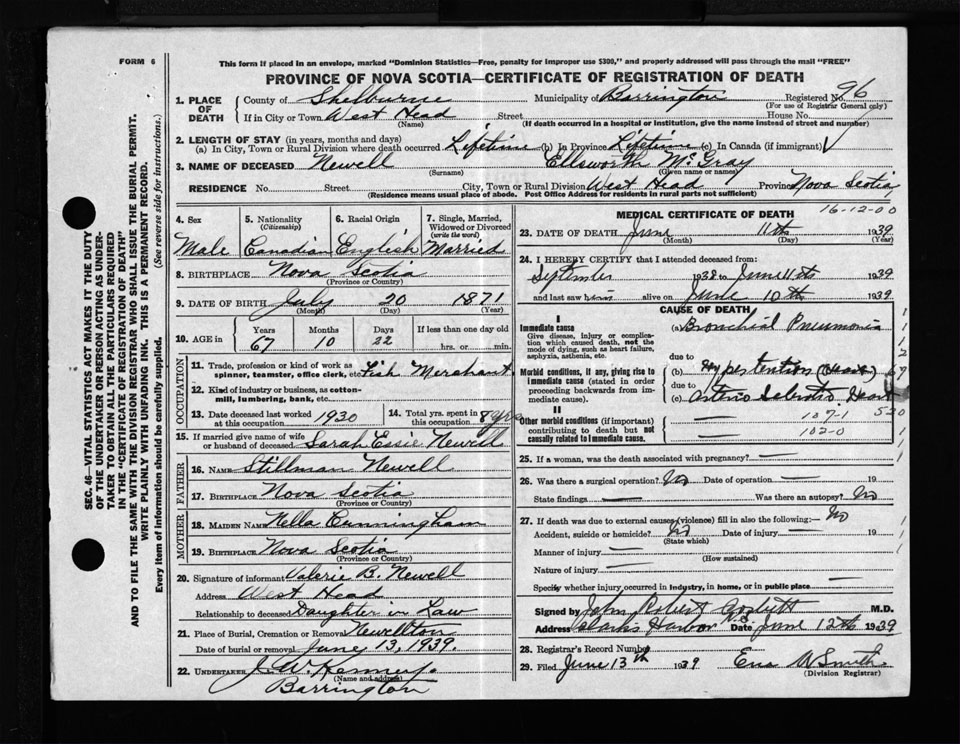 FORM 6
This form if placed in an envelope, marked "Dominion Statistics—Free, penalty for improper use $300," and properly addressed will pass through the mail "FREE"
PROVINCE OF NOVA SCOTIA—CERTIFICATE OF REGISTRATION OF DEATH
SEC. 46—VITAL STATISTICS ACT MAKES IT THE DUTY
OF THE UNDERTAKER OR PERSON ACTING AS UNDER-
TAKER TO OBTAIN ALL THE PARTICULARS REQUIRED
IN THE "CERTIFICATE OF REGISTRATION OF DEATH"
AND TO FILE THE SAME WITH THE DIVISION REGISTRAR WHO SHALL ISSUE THE BURIAL PERMIT.
WRITE PLAINLY WITH UNFADING INK. THIS IS A PERMANENT RECORD.
Every item of information should be carefully supplied. (See reverse side for instructions.)
1. PLACE OF DEATH County of Shelburne Municipality of Barrington Registered No. 96
(For use of Registrar General only)
If in City or Town West Head Street House No.
(Name) (If death occurred in a hospital or institution, give the name instead of street and number)
2. LENGTH OF STAY (in years, months and days)
(a) In City, Town or Rural Division where death occurred Lifetime (b) In Province Lifetime (c) In Canada (if immigrant)
3. NAME OF DECEASED Newell Ellsworth McGray
(Surname) (Given name or names)
RESIDENCE No. Street City, Town or Rural Division West Head Province Nova Scotia
(Residence means usual place of abode. Post Office Address for residents in rural parts not sufficient)
4. Sex 5. Nationality (Citizenship) 6. Racial Origin 7. Single, Married, Widowed or Divorced (write the word)
Male Canadian English Married
8. BIRTHPLACE Nova Scotia
(Province or Country)
9. DATE OF BIRTH July 20 1871
(Month) (Day) (Year)
10. AGE in Years Months Days If less than one day old
67 10 22 hrs. or min.
OCCUPATION
11. Trade, profession or kind of work as
spinner, teamster, office clerk, etc. Fish Merchant
12. Kind of industry or business, as cotton-
mill, lumbering, bank, etc.
13. Date deceased last worked at this occupation 1930 14. Total yrs. spent in this occupation 8 yrs
15. If married give name of wife
or husband of deceased Sarah Essie Newell
FATHER
16. NAME Stillman Newell
17. BIRTHPLACE Nova Scotia
(Province or Country)
MOTHER
18. MAIDEN NAME Nella Cunningham
19. BIRTHPLACE Nova Scotia
(Province or Country)
20. Signature of informant Valerie B. Newell
Address West Head
Relationship to deceased Daughter in Law
21. Place of Burial, Cremation or Removal Newellton
Date of burial or removal June 13, 1939.
22. UNDERTAKER J. W. Kenney.
(Name and address)
Barrington
MEDICAL CERTIFICATE OF DEATH 16-12-00
23. DATE OF DEATH June 11th 1939
(Month) (Day) (Year)
24. I HEREBY CERTIFY that I attended deceased from:
September 1938 to June 11th 1939
and last saw him alive on June 10th 1939
CAUSE OF DEATH
I
Immediate cause (a) Bronchial Pneumonia
Give disease, injury or complica-
tion which caused death, not the
mode of dying, such as heart failure,
asphyxia, asthenia, etc.
due to
Morbid conditions, if any, giving rise to (b) Hypertention
immediate cause (stated in order due to
proceeding backwards from im- (c) Arterio Sclerotic Heart
mediate cause).
II
Other morbid conditions (if important)
contributing to death but not
causally related to immediate cause.
107-1
102-0
25. If a woman, was the death associated with pregnancy? —
26. Was there a surgical operation? No Date of operation — 19
State findings — Was there an autopsy? No
27. If death was due to external causes (violence) fill in also the following:— No
Accident, suicide or homicide? No Date of injury — 19
(State which)
Manner of injury —
(How sustained)
Nature of injury —
Specify whether injury occurred in industry, in home, or in public place —
Signed by John Robert M.D.
Address Clark's Harbor N.S. Date June 12th 1939
28. Registrar's Record Number
29. Filed June 13th 1939 Ena W Smith.
(Division Registrar)